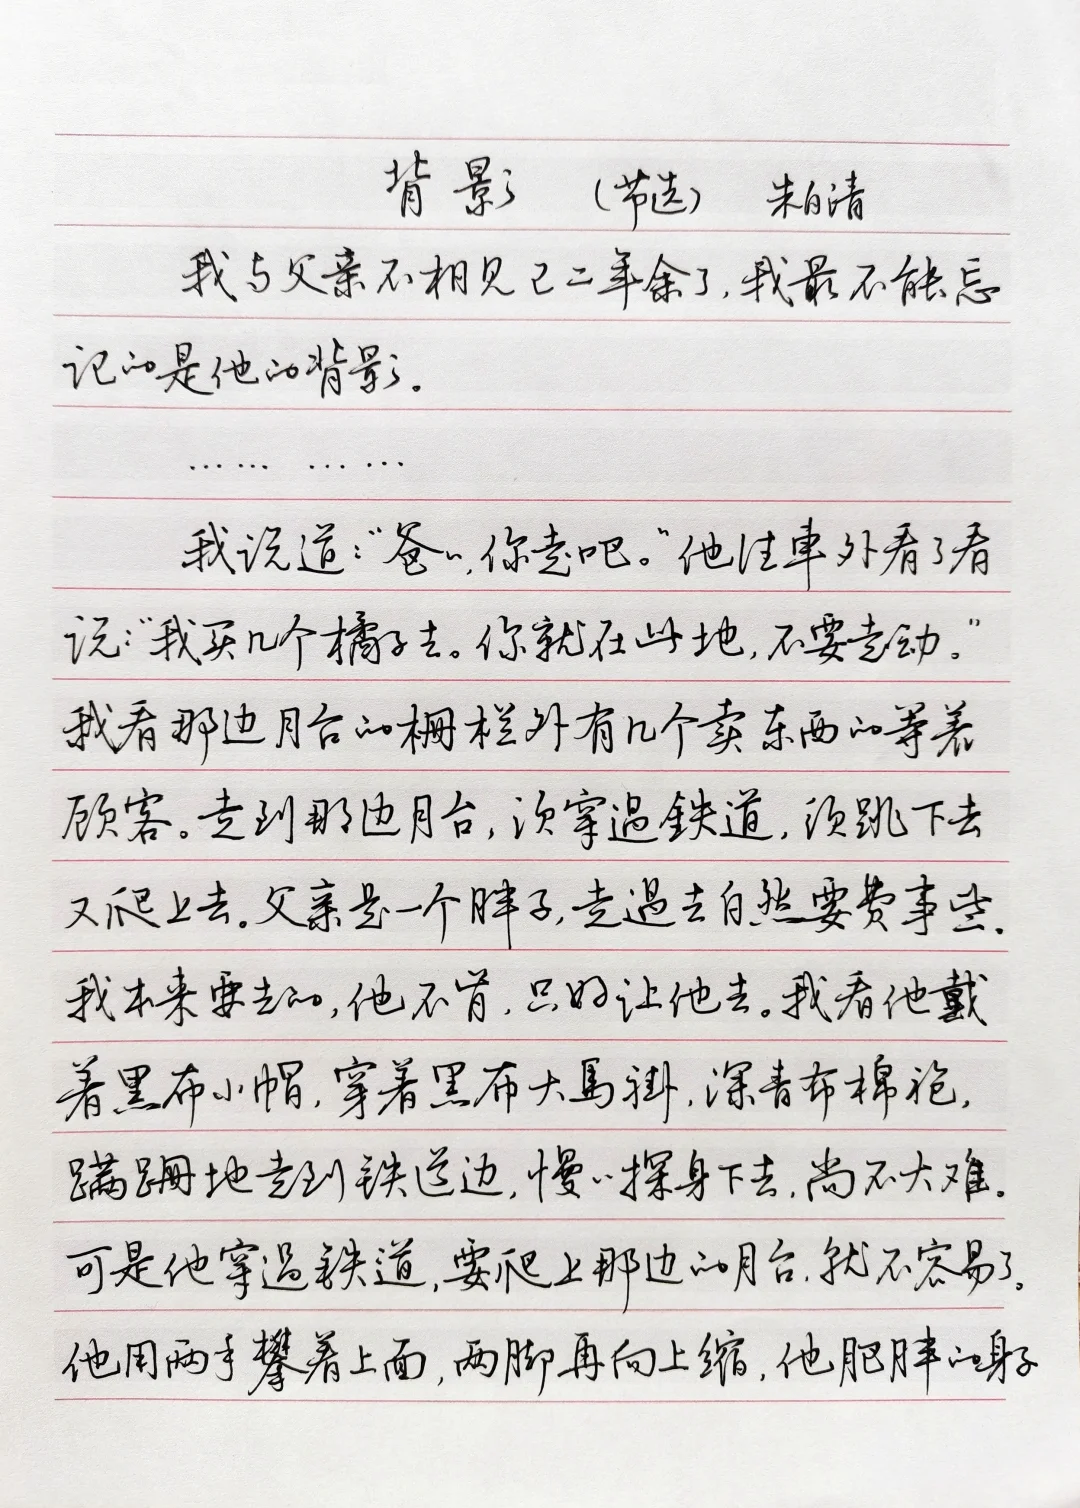 背影 （节选） 朱自清
我与父亲不相见已二年余了，我最不能忘
记的是他的背影。
…… ……
我说道：“爸爸，你走吧。”他往车外看了看
说：“我买几个橘子去。你就在此地，不要走动。”
我看那边月台的栅栏外有几个卖东西的等着
顾客。走到那边月台，须穿过鉄道，须跳下去
又爬上去。父亲是一个胖子，走過去自然要费事些。
我本来要去的，他不肯，只好让他去。我看他戴
着黑布小帽，穿着黑布大馬褂，深青布棉袍，
蹒跚地走到铁道边，慢慢探身下去，尚不大难。
可是他穿過鉄道，要爬上那边的月台，就不容易了。
他用两手攀着上面，两脚再向上缩，他肥胖的身子